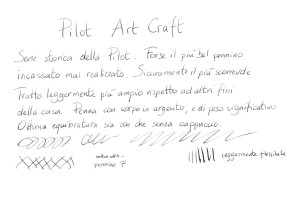 Pilot Art Craft
Serie storica della Pilot. Forse il più bel pennino
incassato mai realizzato. Sicuramente il più scorrevole
Tratto leggermente più ampio rispetto ad altri fini
della casa. Penna con corpo in argento, e di peso significativo
Ottima equilibratura sia con che senza cappuccio.
pennino F
leggermente flessibile